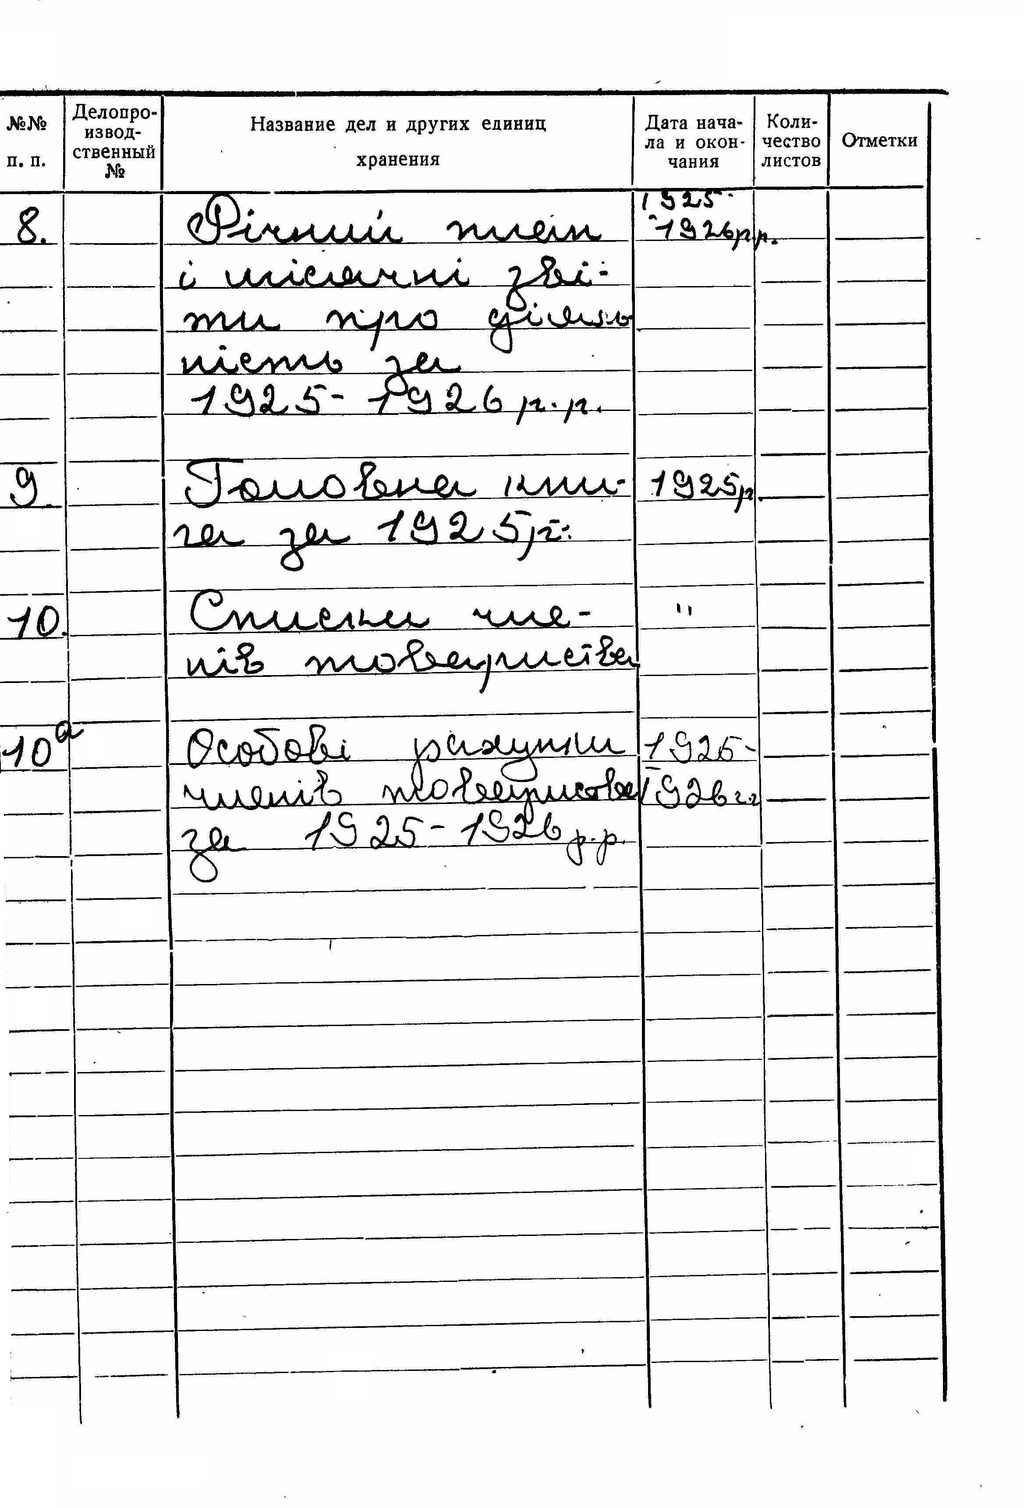 №№ п. п.
Делопроизвод-ственный №
Название дел и других единиц хранения
Дата нача-ла и окон-чания
Коли-чество листов
Отметки
8. Річний план 1925-
і місячні зві- 1926р.р.
ти про діяль
ність за
1925-1926 р.р.
9. Головна кни- 1925р.
га за 1925р.
10. Списки чле- "
нів товариства
10а Особові рахунки 1925-
членів товариства 1926 г.г.
за 1925-1926 р.р.